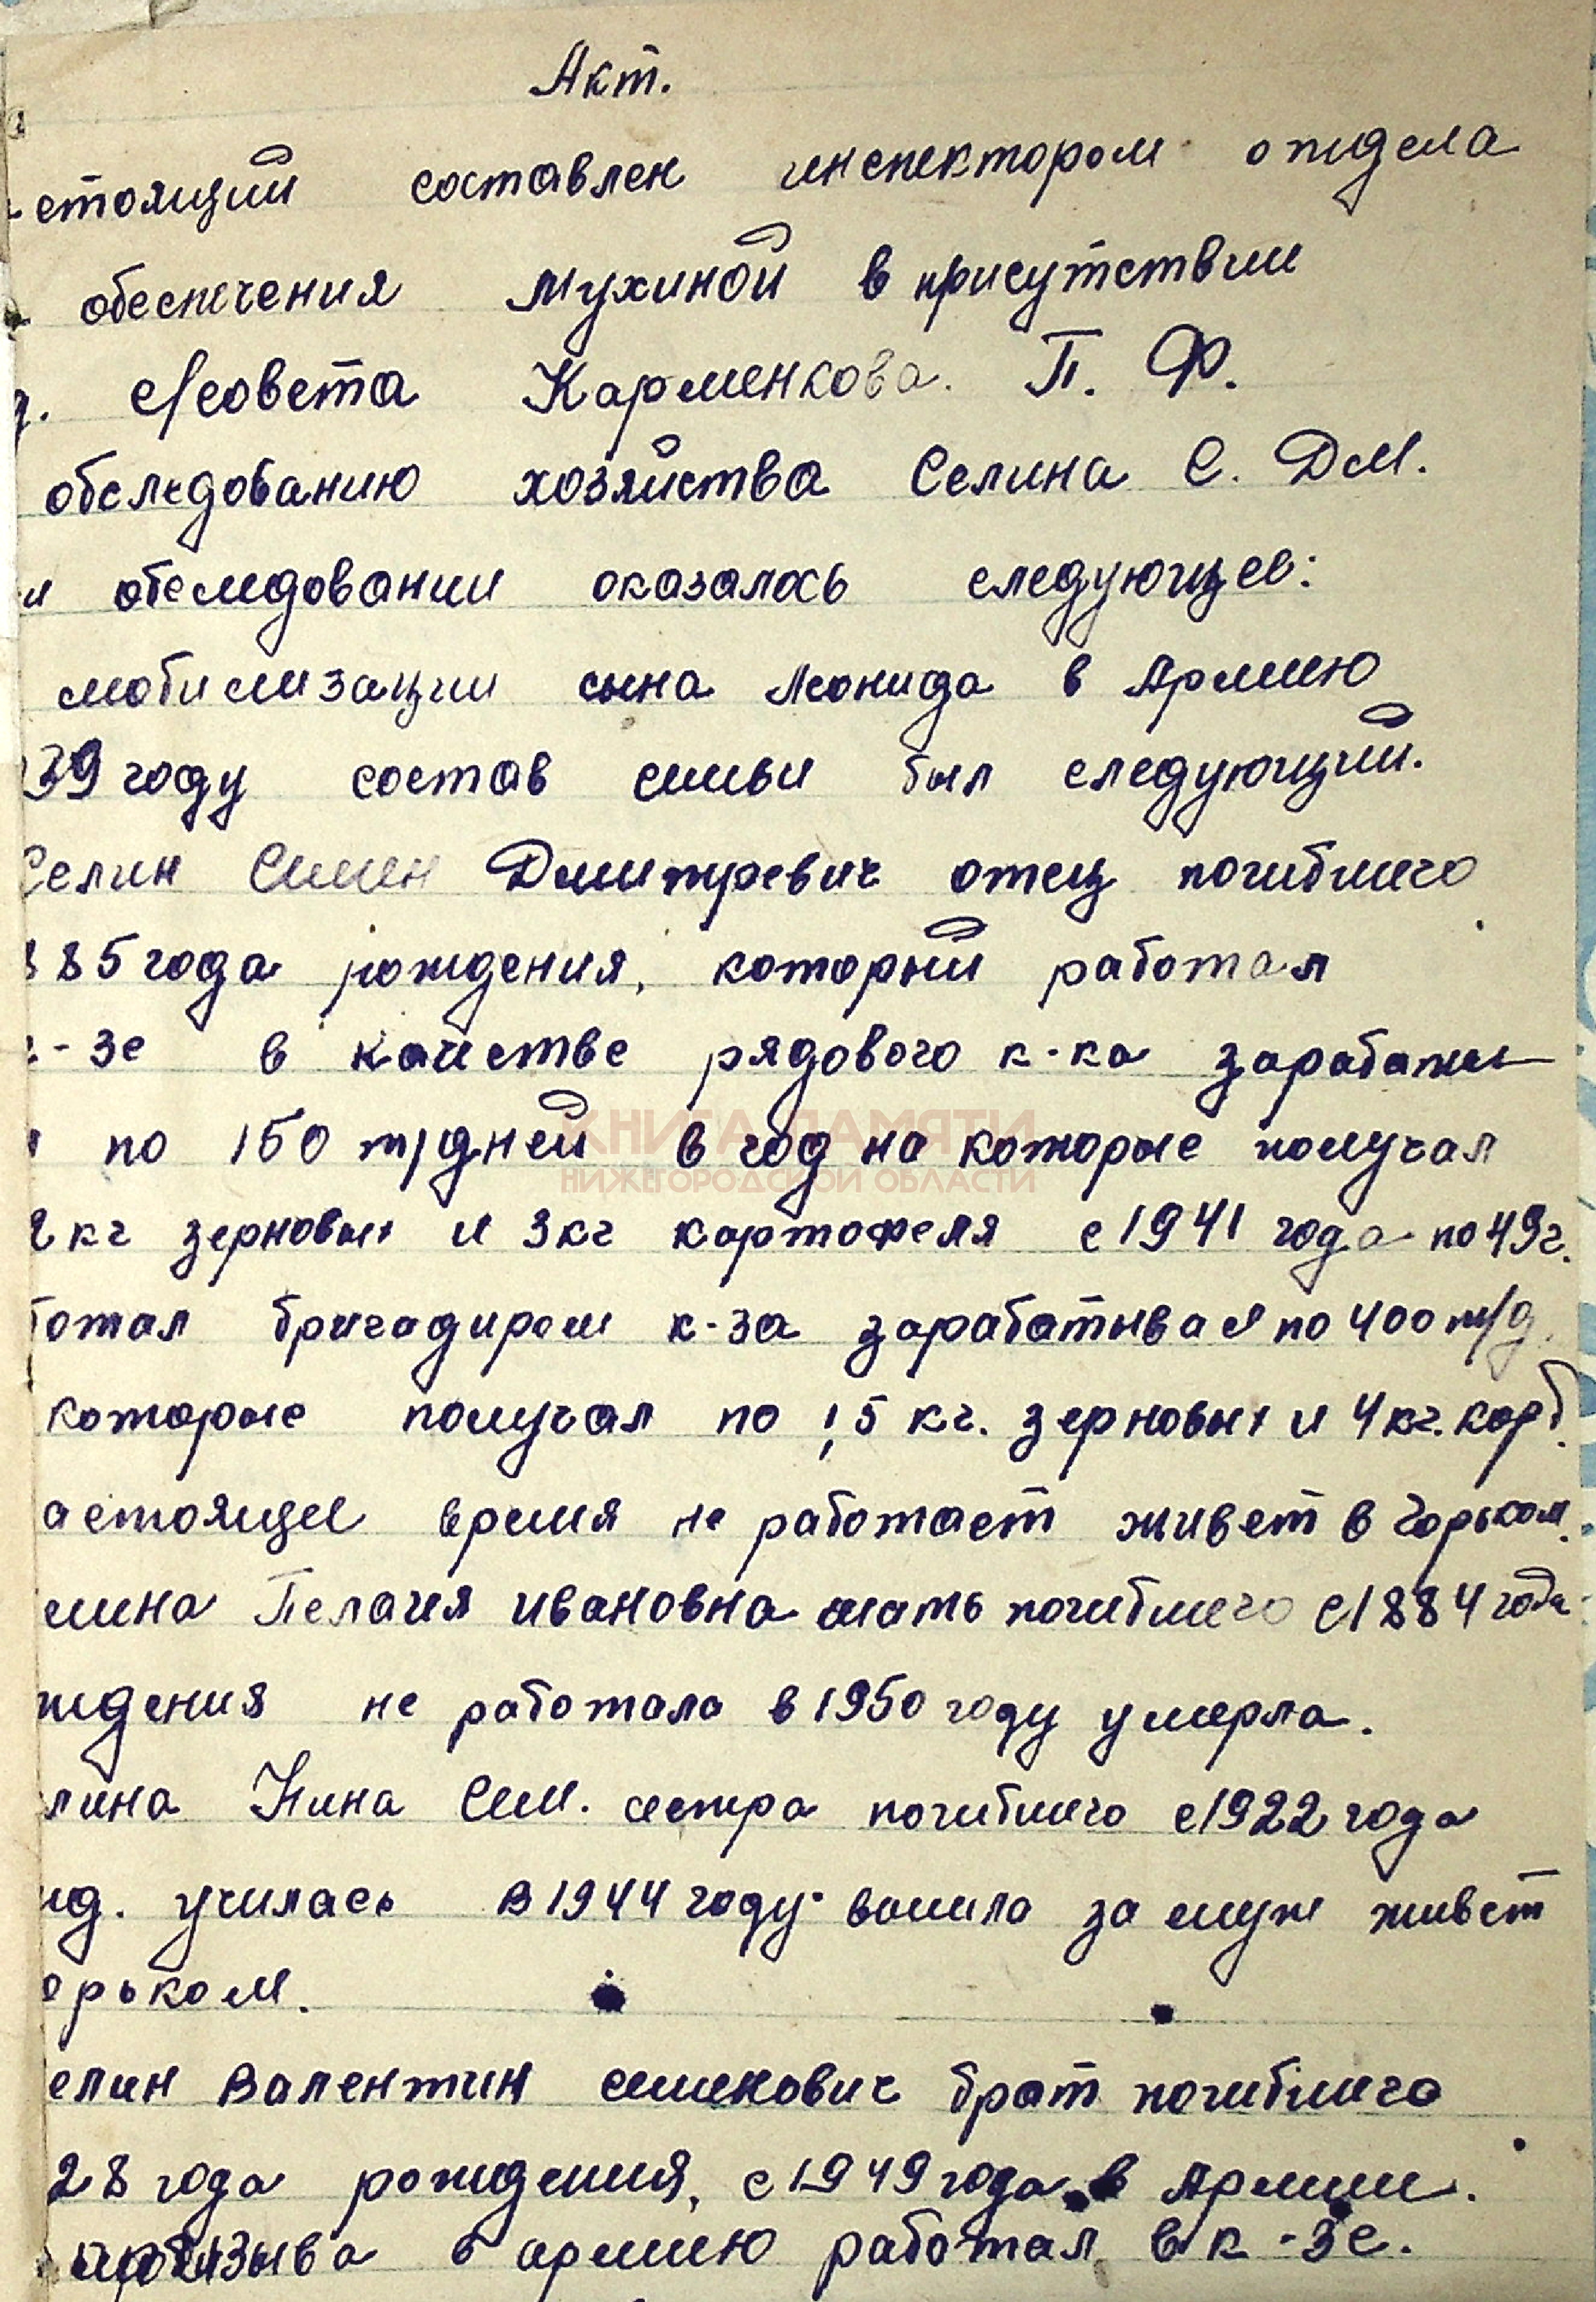 Акт.
стоящий составлен инспектором отдела
обеспечения Мухиной в присутствии
с/совета Карменкова. П. Ф.
обследованию хозяйства Селина С. Дм.
и обследовании оказалось следующее:
мобилизации сына Леонида в Армию
39 году состав семьи был следующий.
Селин Семен Дмитревич отец погибшего
885 года рождения, который работал
к-зе в качестве рядового к-ка зарабаты-
по 150 т/дней в год на которые получал
2 кг зерновых и 3 кг картофеля с 1941 года по 49 г.
ботал бригадиром к-за зарабатывая по 400 т/д.
которые получал по 1,5 кг. зерновых и 4 кг. карт.
астоящее время не работает живет в Горьком.
лина Пелагия Ивановна мать погибшего с 1884 года
ждения не работала в 1950 году умерла.
лина Нина Сем. сестра погибшего с 1922 года
жд. училась в 1944 году вышла за муж живет
орьком.
елин Валентин Семенович брат погибшего
28 года рождения, с 1949 года в Армии.
призыва в армию работал в к-зе.
КНИГА ПАМЯТИ
НИЖЕГОРОДСКОЙ ОБЛАСТИ